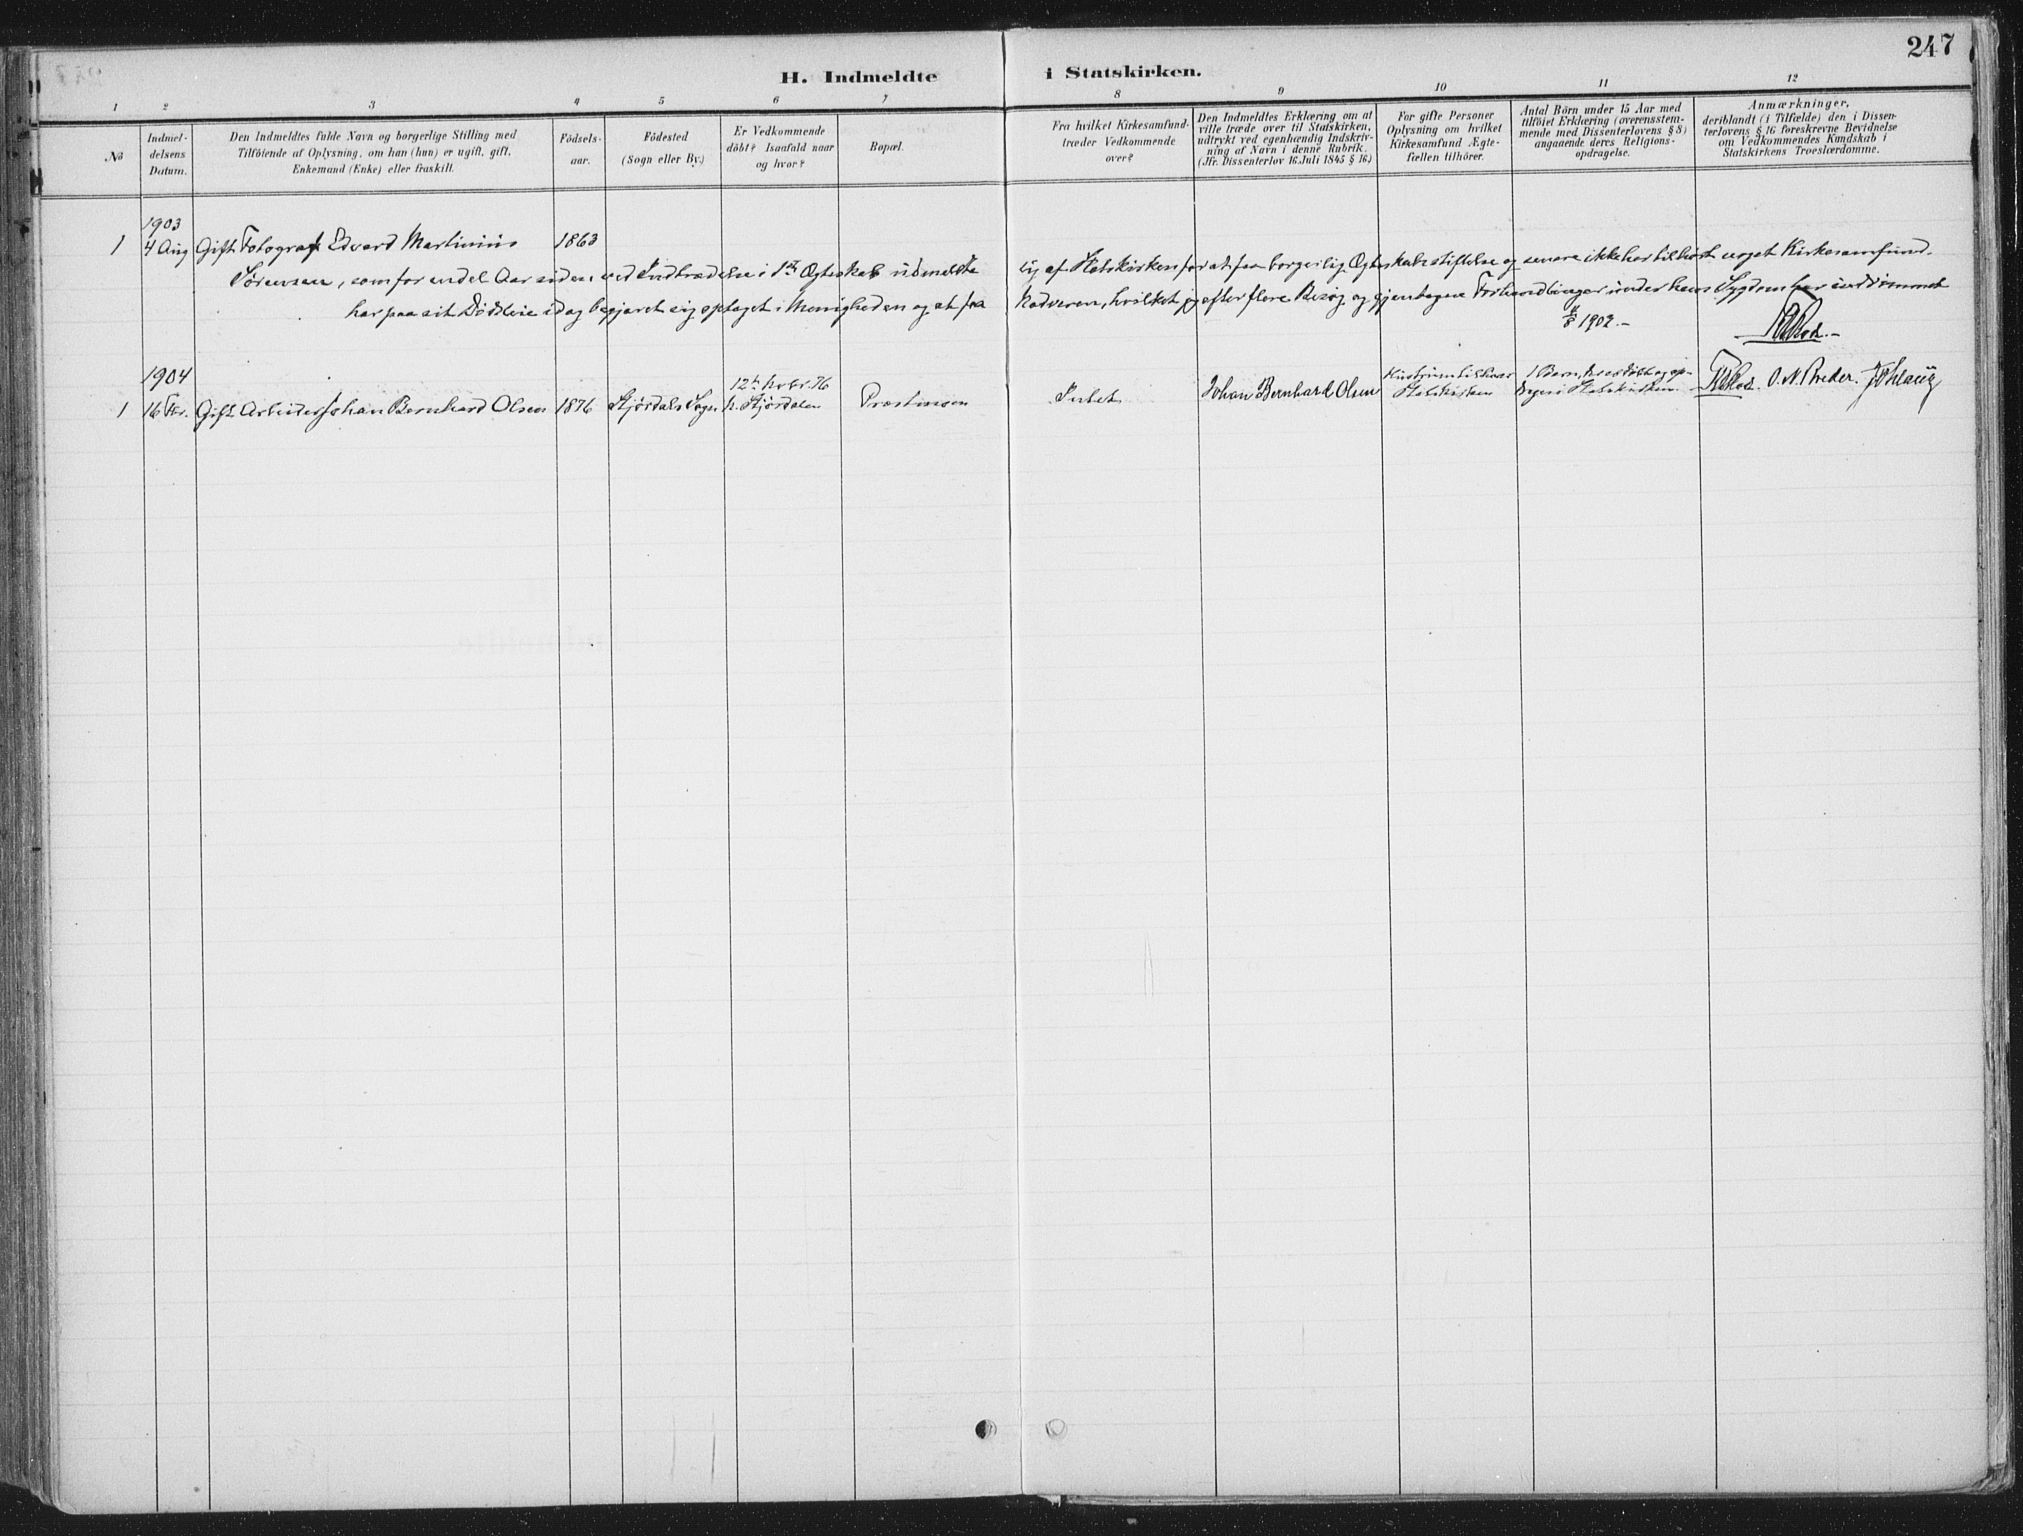 247
H. Indmeldte i Statskirken.
1 2 3 4 5 6 7 8 9 10 11 12
No
Indmel-
delsens
Datum.
Den Indmeldtes fulde Navn og borgerlige Stilling med
Tilföiende af Oplysning, om han (hun) er ugift, gift,
Enkemand (Enke) eller fraskill.
Födsels-
aar.
Födested
(Sogn eller By.)
Er Vedkommende
döbt? Isaafald naar
og hvor?
Bopæl.
Fra hvilket Kirkesamfund-
træder Vedkommende
over?
Den Indmeldtes Erklæring om at
ville træde over til Statskirken,
udtrykt ved egenhændig Indskriv-
ning af Navn i denne Rubrik.
(Jfr. Dissenterlov 16. Juli 1845 § 16.)
For gifte Personer
Oplysning om hvilket
Kirkesamfund Ægte-
fællen tilhörer.
Antal Börn under 15 Aar med
tilföiet Erklæring (overensstem-
mende med Dissenterlovens § 8)
angaaende deres Religions-
opdragelse.
Anmærkninger,
deriblandt (i Tilfælde) den i Dissen-
terlovens § 16 foreskrevne Bevidnelse
om Vedkommendes Kundskab i
Statskirkens Troeslærdomme.
1903
1 4 Aug Gift Fotograf Edvard Martinius 1863
Sörensen, som for endel Aar siden ved Indtrædelse i 1ste Ægteskab udmeldte sig af Statskirken for at faa borgerlig Ægteskabsstiftelse og senere ikke har tilhört noget Kirkesamfund
har paa sit Dödsleie idag begjæret sig optaget i Menigheden og at faa Nadveren, hvilket jeg efter flere Besög og gjentagne Forhandlinger under hans Sygdom har indrömmet
4/8 1903.-
1904
1 16 Gift Arbeider Johan Bernhard Olsen 1876 Stjördals Sogn 12te Novbr. 76 N. Stjördalen Præstmoen Intet Johan Bernhard Olsen Hustruen tilhörer Statskirken 1 Barn, Statskirken O. N. Breder.